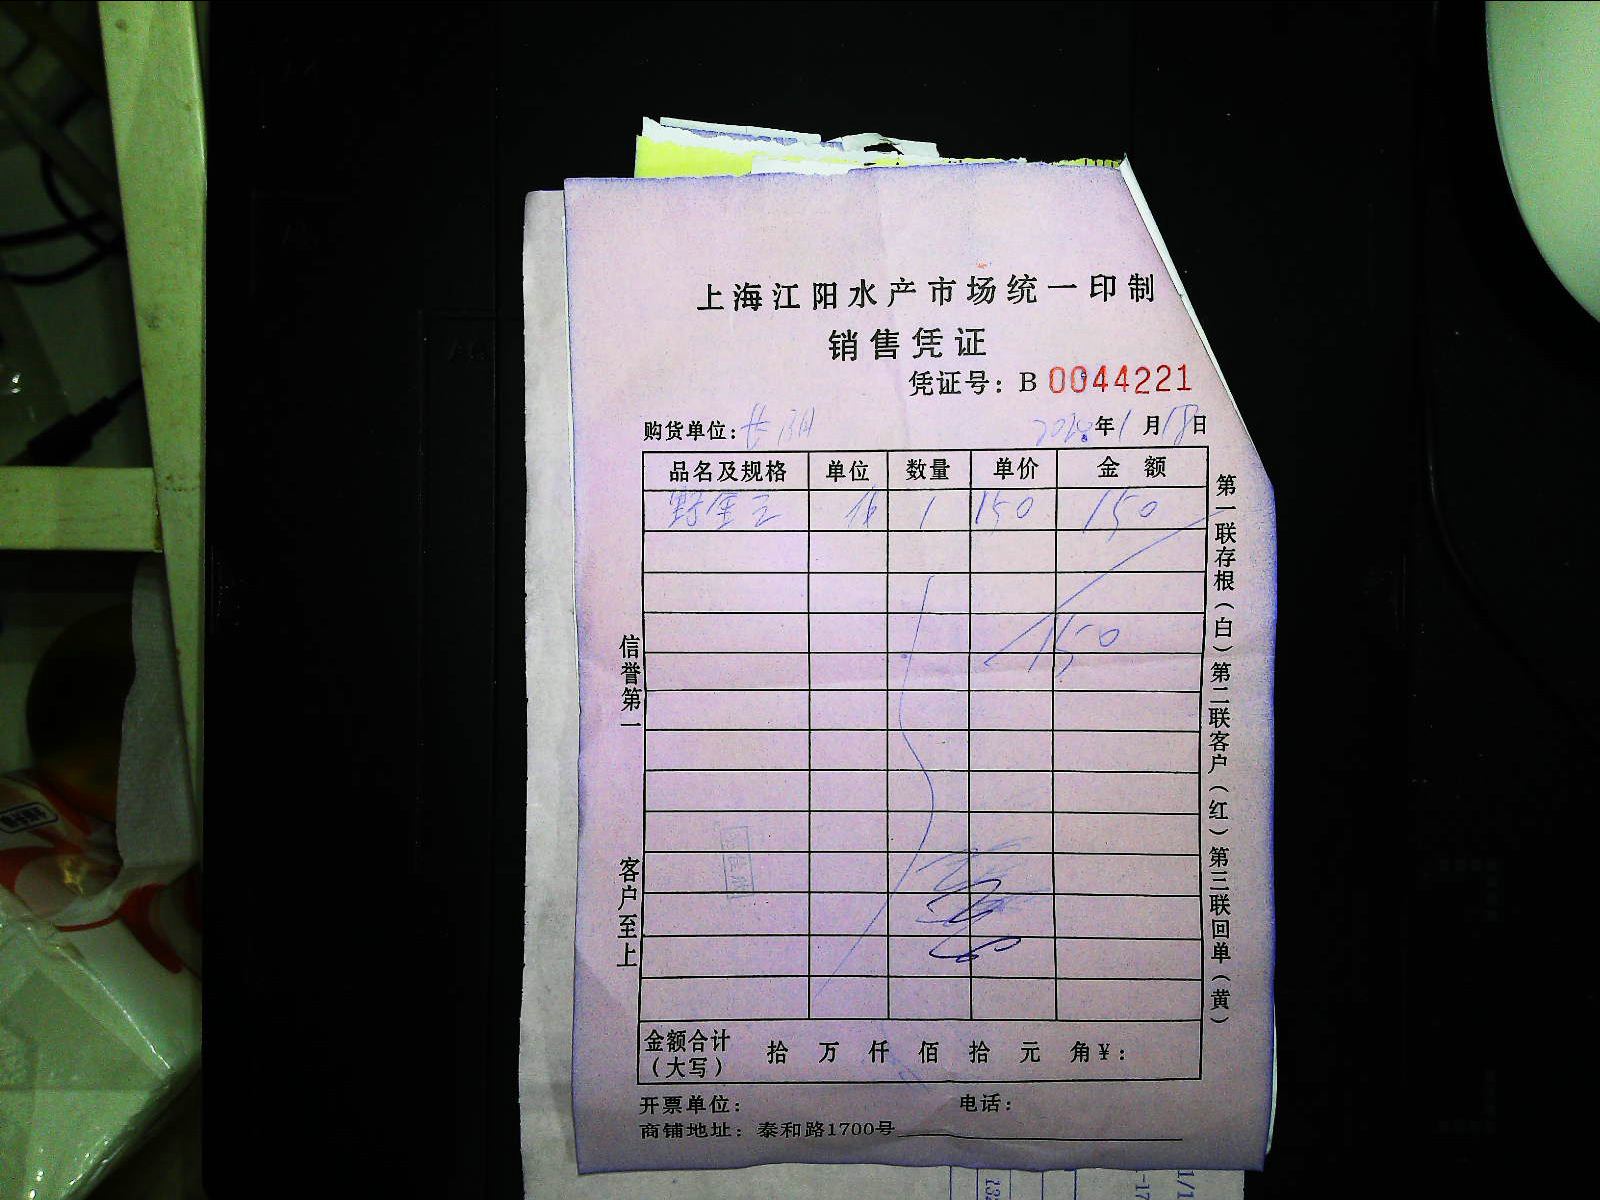 上海江阳水产市场统一印制
销售凭证
凭证号：B 0044221
购货单位：
年1月18日
品名及规格 单位 数量 单价 金额
1 150 150
150
信誉第一
客户至上
第一联存根（白）第二联客户（红）第三联回单（黄）
金额合计（大写） 拾 万 仟 佰 拾 元 角 ¥：
开票单位： 电话：
商铺地址：泰和路1700号